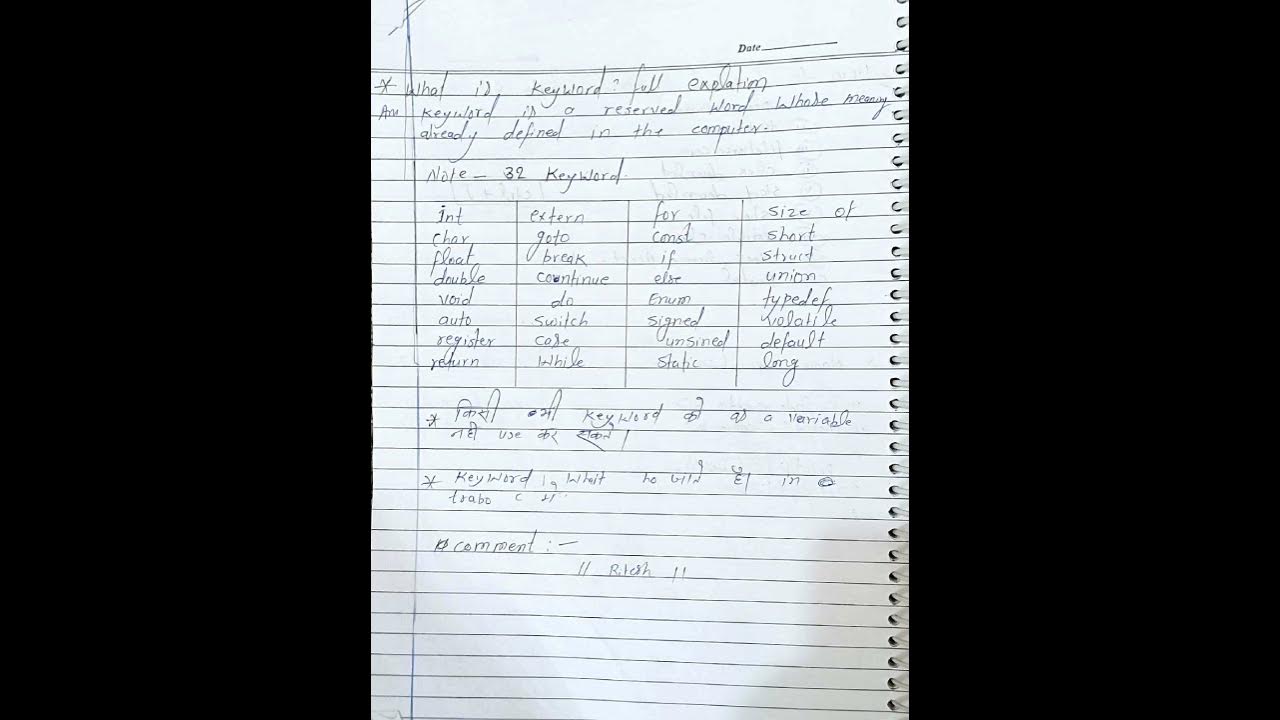 Date
* What is, keyword? full explation
Ans keyword is a reserved word whose meaning
already defined in the computer.
Note - 32 keyword.
int extern for size of
char goto const short
float break if struct
double countinue else union
void do Enum typedef
auto switch signed volatile
register case unsined default
return while static long
* किसी भी keyword को as a variable
नही use कर सकते।
* keyword is whit हो जाते है। in
trabo c
* comment :-
// Ritesh //